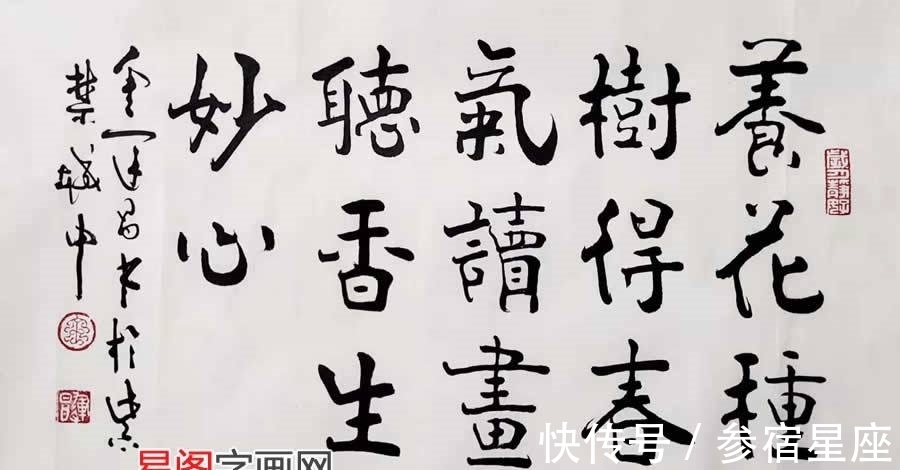 養花種
樹得春
氣讀畫
聽香生
妙心
金运昌书於紫
禁城中
快传号 / 参宿星座
易阁字画网